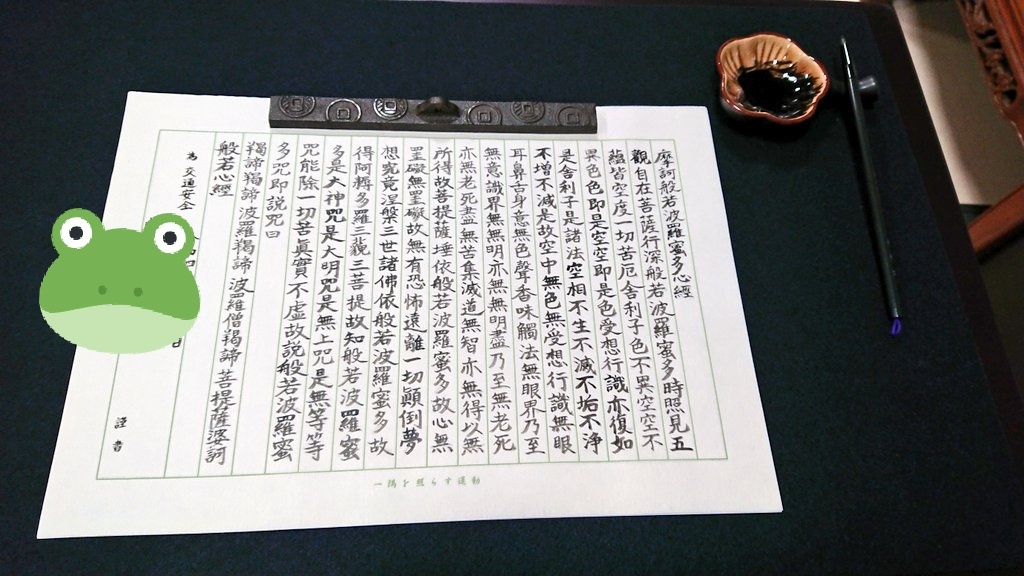 摩訶般若波羅蜜多心經
觀自在菩薩行深般若波羅蜜多時照見五
蘊皆空度一切苦厄舍利子色不異空空不
異色色即是空空即是色受想行識亦復如
是舍利子是諸法空相不生不滅不垢不淨
不增不減是故空中無色無受想行識無眼
耳鼻舌身意無色聲香味觸法無眼界乃至
無意識界無無明亦無無明盡乃至無老死
亦無老死盡無苦集滅道無智亦無得以無
所得故菩提薩埵依般若波羅蜜多故心無
罣礙無罣礙故無有恐怖遠離一切顛倒夢
想究竟涅槃三世諸佛依般若波羅蜜多故
得阿耨多羅三藐三菩提故知般若波羅蜜
多是大神咒是大明咒是無上咒是無等等
咒能除一切苦眞實不虛故説般若波羅蜜
多咒即説咒曰
羯諦羯諦 波羅羯諦 波羅僧羯諦 菩提薩婆訶
般若心經
為 交通安全
謹書
一隅を照らす運動